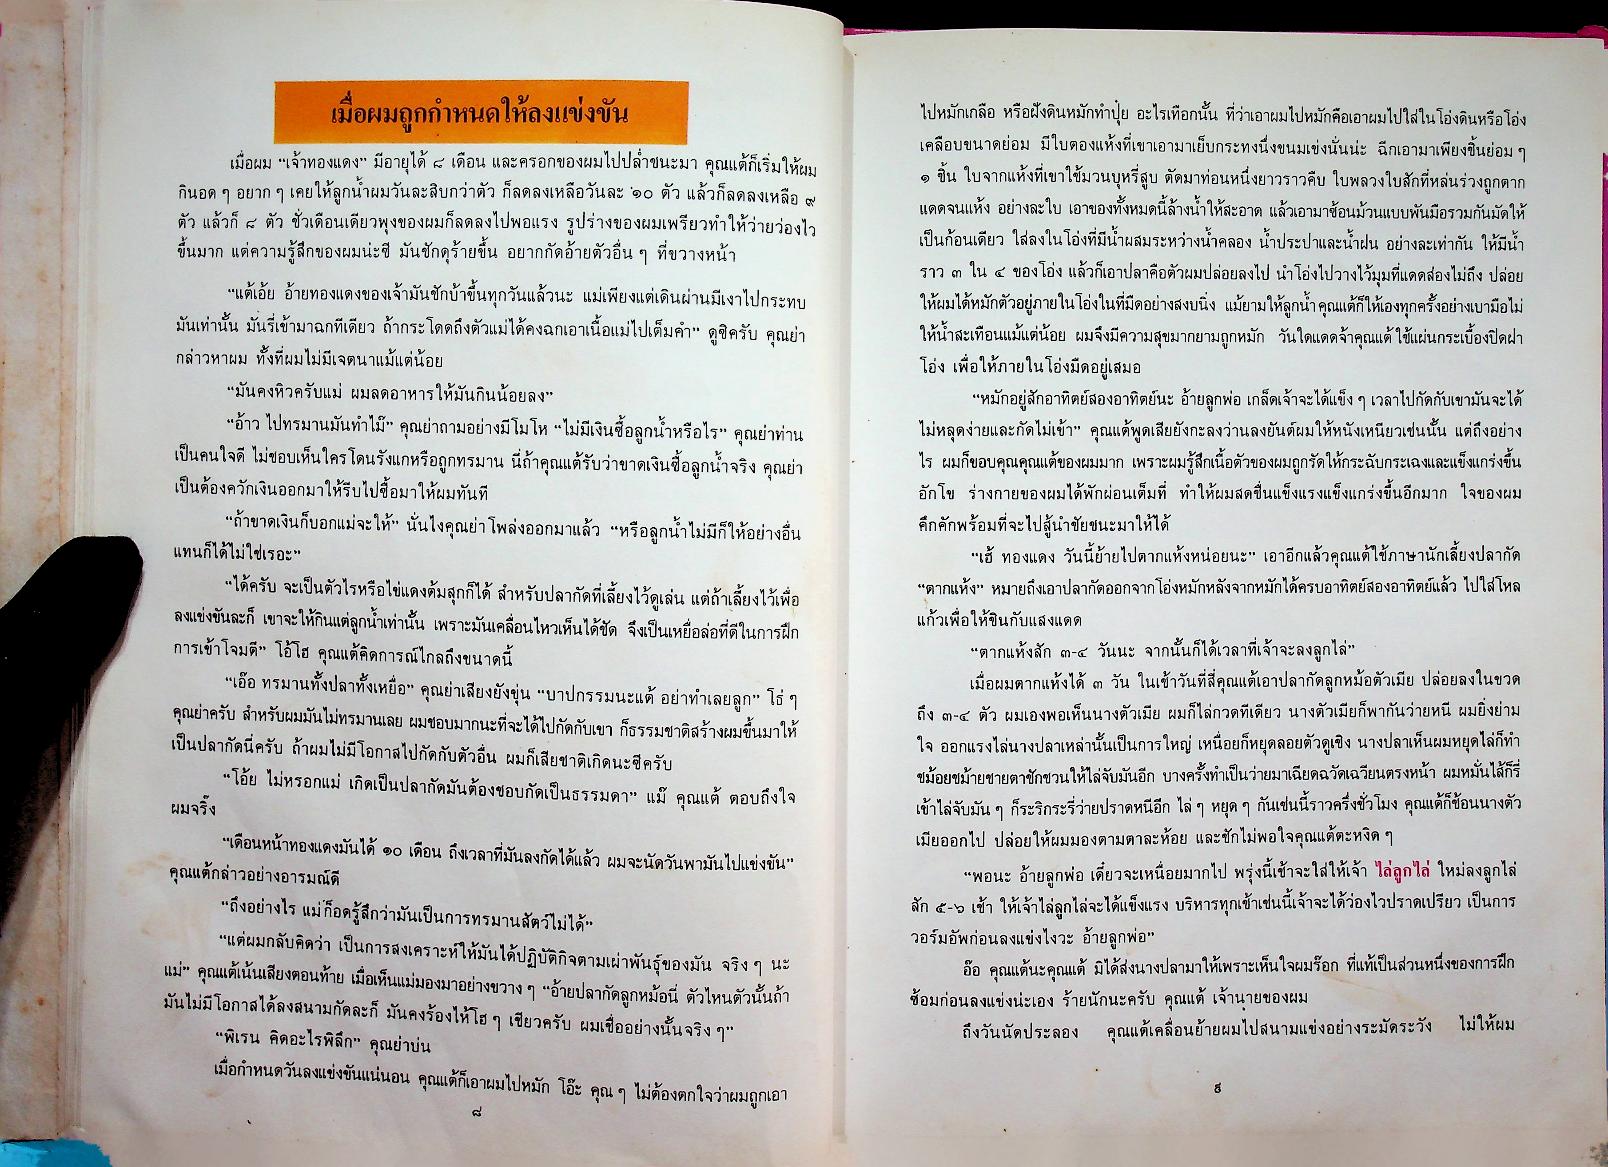 เมื่อผมถูกกำหนดให้ลงแข่งขัน
เมื่อผม “เจ้าทองแดง” มีอายุได้ ๘ เดือน และครอกของผมไปปล้ำชนะมา คุณแต้ก็เริ่มให้ผม
กินอด ๆ อยาก ๆ เคยให้ลูกน้ำผมวันละสิบกว่าตัว ก็ลดลงเหลือวันละ ๑๐ ตัว แล้วก็ลดลงเหลือ ๙
ตัว แล้วก็ ๘ ตัว ชั่วเดือนเดียวพุงของผมก็ลดลงไปพอแรง รูปร่างของผมเพรียวทำให้ว่ายว่องไว
ขึ้นมาก แต่ความรู้สึกของผมน่ะซี มันชักดุร้ายขึ้น อยากกัดอ้ายตัวอื่น ๆ ที่ขวางหน้า
“แต้เอ้ย อ้ายทองแดงของเจ้ามันชักบ้าขึ้นทุกวันแล้วนะ แม่เพียงแต่เดินผ่านมีเงาไปกระทบ
มันเท่านั้น มันรี่เข้ามาฉกทีเดียว ถ้ากระโดดถึงตัวแม่ได้คงฉกเอาเนื้อแม่ไปเต็มคำ” ดูซิครับ คุณย่า
กล่าวหาผม ทั้งที่ผมไม่มีเจตนาแม้แต่น้อย
“มันคงหิวครับแม่ ผมลดอาหารให้มันกินน้อยลง”
“อ้าว ไปทรมานมันทำไม๊” คุณย่าถามอย่างมีโมโห “ไม่มีเงินซื้อลูกน้ำหรือไร” คุณย่าท่าน
เป็นคนใจดี ไม่ชอบเห็นใครโดนรังแกหรือถูกทรมาน นี่ถ้าคุณแต้รับว่าขาดเงินซื้อลูกน้ำจริง คุณย่า
เป็นต้องควักเงินออกมาให้รีบไปซื้อมาให้ผมทันที
“ถ้าขาดเงินก็บอกแม่จะให้” นั่นไงคุณย่าโพล่งออกมาแล้ว “หรือลูกน้ำไม่มีก็ให้อย่างอื่น
แทนก็ได้ไม่ใช่เรอะ”
“ได้ครับ จะเป็นตัวไรหรือไข่แดงต้มสุกก็ได้ สำหรับปลากัดที่เลี้ยงไว้ดูเล่น แต่ถ้าเลี้ยงไว้เพื่อ
ลงแข่งขันละก็ เขาจะให้กินแต่ลูกน้ำเท่านั้น เพราะมันเคลื่อนไหวเห็นได้ชัด จึงเป็นเหยื่อล่อที่ดีในการฝึก
การเข้าโจมตี” โอ้โฮ คุณแต้คิดการณ์ไกลถึงขนาดนี้
“เอ๊อ ทรมานทั้งปลาทั้งเหยื่อ” คุณย่าเสียงยังขุ่น “บาปกรรมนะแต้ อย่าทำเลยลูก” โธ่ ๆ
คุณย่าครับ สำหรับผมมันไม่ทรมานเลย ผมชอบมากนะที่จะได้ไปกัดกับเขา ก็ธรรมชาติสร้างผมขึ้นมาให้
เป็นปลากัดนี่ครับ ถ้าผมไม่มีโอกาสไปกัดกับตัวอื่น ผมก็เสียชาติเกิดนะซีครับ
“โอ้ย ไม่หรอกแม่ เกิดเป็นปลากัดมันต้องชอบกัดเป็นธรรมดา” แม๊ คุณแต้ ตอบถึงใจ
ผมจริ๊ง
“เดือนหน้าทองแดงมันได้ ๑๐ เดือน ถึงเวลาที่มันลงกัดได้แล้ว ผมจะนัดวันพามันไปแข่งขัน”
คุณแต้กล่าวอย่างอารมณ์ดี
“ถึงอย่างไร แม่ก็อดรู้สึกว่ามันเป็นการทรมานสัตว์ไม่ได้”
“แต่ผมกลับคิดว่า เป็นการสงเคราะห์ให้มันได้ปฏิบัติกิจตามเผ่าพันธุ์ของมัน จริง ๆ นะ
แม่” คุณแต้เน้นเสียงตอนท้าย เมื่อเห็นแม่มองมาอย่างขวาง ๆ “อ้ายปลากัดลูกหม้อนี่ ตัวไหนตัวนั้นถ้า
มันไม่มีโอกาสได้ลงสนามกัดละก็ มันคงร้องไห้โฮ ๆ เชียวครับ ผมเชื่ออย่างนั้นจริง ๆ”
“พิเรน คิดอะไรพิลึก” คุณย่าบ่น
เมื่อกำหนดวันลงแข่งขันแน่นอน คุณแต้ก็เอาผมไปหมัก โอ๊ะ คุณ ๆ ไม่ต้องตกใจว่าผมถูกเอา
๘
ไปหมักเกลือ หรือฝังดินหมักทำปุ๋ย อะไรเทือกนั้น ที่ว่าเอาผมไปหมักคือเอาผมไปใส่ในโอ่งดินหรือโอ่ง
เคลือบขนาดย่อม มีใบตองแห้งที่เขาเอามาเย็บกระทงนึ่งขนมเข่งนั่นน่ะ ฉีกเอามาเพียงชิ้นย่อม ๆ
๑ ชิ้น ใบจากแห้งที่เขาใช้มวนบุหรี่สูบ ตัดมาท่อนหนึ่งยาวราวคืบ ใบพลวงใบสักที่หล่นร่วงถูกตาก
แดดจนแห้ง อย่างละใบ เอาของทั้งหมดนี้ล้างน้ำให้สะอาด แล้วเอามาซ้อนม้วนแบบพันมือรวมกันมัดให้
เป็นก้อนเดียว ใส่ลงในโอ่งที่มีน้ำผสมระหว่างน้ำคลอง น้ำประปาและน้ำฝน อย่างละเท่ากัน ให้มีน้ำ
ราว ๓ ใน ๔ ของโอ่ง แล้วก็เอาปลาคือตัวผมปล่อยลงไป นำโอ่งไปวางไว้มุมที่แดดส่องไม่ถึง ปล่อย
ให้ผมได้หมักตัวอยู่ภายในโอ่งในที่มืดอย่างสงบนิ่ง แม้ยามให้ลูกน้ำ คุณแต้ก็ให้เองทุกครั้งอย่างเบามือไม่
ให้น้ำสะเทือนแม้แต่น้อย ผมจึงมีความสุขมากยามถูกหมัก วันใดแดดจ้าคุณแต้ ใช้แผ่นกระเบื้องปิดฝา
โอ่ง เพื่อให้ภายในโอ่งมืดอยู่เสมอ
“หมักอยู่สักอาทิตย์สองอาทิตย์นะ อ้ายลูกพ่อ เกล็ดเจ้าจะได้แข็ง ๆ เวลาไปกัดกับเขามันจะได้
ไม่หลุดง่ายและกัดไม่เข้า” คุณแต้พูดเสียยังกะลงว่านลงยันต์ผมให้หนังเหนียวเช่นนั้น แต่ถึงอย่าง
ไร ผมก็ขอบคุณคุณแต้ของผมมาก เพราะผมรู้สึกเนื้อตัวของผมถูกรัดให้กระฉับกระเฉงและแข็งแกร่งขึ้น
อักโข ร่างกายของผมได้พักผ่อนเต็มที่ ทำให้ผมสดชื่นแข็งแรงแข็งแกร่งขึ้นอีกมาก ใจของผม
คึกคักพร้อมที่จะไปสู้นำชัยชนะมาให้ได้
“เฮ้ ทองแดง วันนี้ย้ายไปตากแห้งหน่อยนะ” เอาอีกแล้วคุณแต้ใช้ภาษานักเลี้ยงปลากัด
“ตากแห้ง” หมายถึงเอาปลากัดออกจากโอ่งหมักหลังจากหมักได้ครบอาทิตย์สองอาทิตย์แล้ว ไปใส่โหล
แก้วเพื่อให้ชินกับแสงแดด
“ตากแห้งสัก ๓-๔ วันนะ จากนั้นก็ได้เวลาที่เจ้าจะลงลูกไล่”
เมื่อผมตากแห้งได้ ๓ วัน ในเช้าวันที่สี่คุณแต้เอาปลากัดลูกหม้อตัวเมีย ปล่อยลงในขวด
ถึง ๓-๔ ตัว ผมเองพอเห็นนางตัวเมีย ผมก็ไล่กวดทีเดียว นางตัวเมียก็พากันว่ายหนี ผมยิ่งย่าม
ใจ ออกแรงไล่นางปลาเหล่านั้นเป็นการใหญ่ เหนื่อยก็หยุดลอยตัวดูเชิง นางปลาเห็นผมหยุดไล่ก็ทำ
ชม้อยชม้ายชายตาชักชวนให้ไล่จับมันอีก บางครั้งทำเป็นว่ายมาเฉียดฉวัดเฉวียนตรงหน้า ผมหมั่นไส้ก็รี่
เข้าไล่จับมัน ๆ ก็ระริกระรี่ว่ายปราดหนีอีก ไล่ ๆ หยุด ๆ กันเช่นนี้ราวครึ่งชั่วโมง คุณแต้ก็ช้อนนางตัว
เมียออกไป ปล่อยให้ผมมองตามตาละห้อย และชักไม่พอใจคุณแต้ตะหงิด ๆ
“พอนะ อ้ายลูกพ่อ เดี๋ยวจะเหนื่อยมากไป พรุ่งนี้เช้าจะใส่ให้เจ้า ไล่ลูกไล่ ใหม่ลงลูกไล่
สัก ๕-๖ เช้า ให้เจ้าไล่ลูกไล่จะได้แข็งแรง บริหารทุกเช้าเช่นนี้เจ้าจะได้ว่องไวปราดเปรียว เป็นการ
วอร์มอัพก่อนลงแข่งไงวะ อ้ายลูกพ่อ”
อ๊อ คุณแต้นะคุณแต้ มิได้ส่งนางปลามาให้เพราะเห็นใจผมร๊อก ที่แท้เป็นส่วนหนึ่งของการฝึก
ซ้อมก่อนลงแข่งน่ะเอง ร้ายนักนะครับ คุณแต้ เจ้านายของผม
ถึงวันนัดประลอง คุณแต้เคลื่อนย้ายผมไปสนามแข่งอย่างระมัดระวัง ไม่ให้ผม
๕